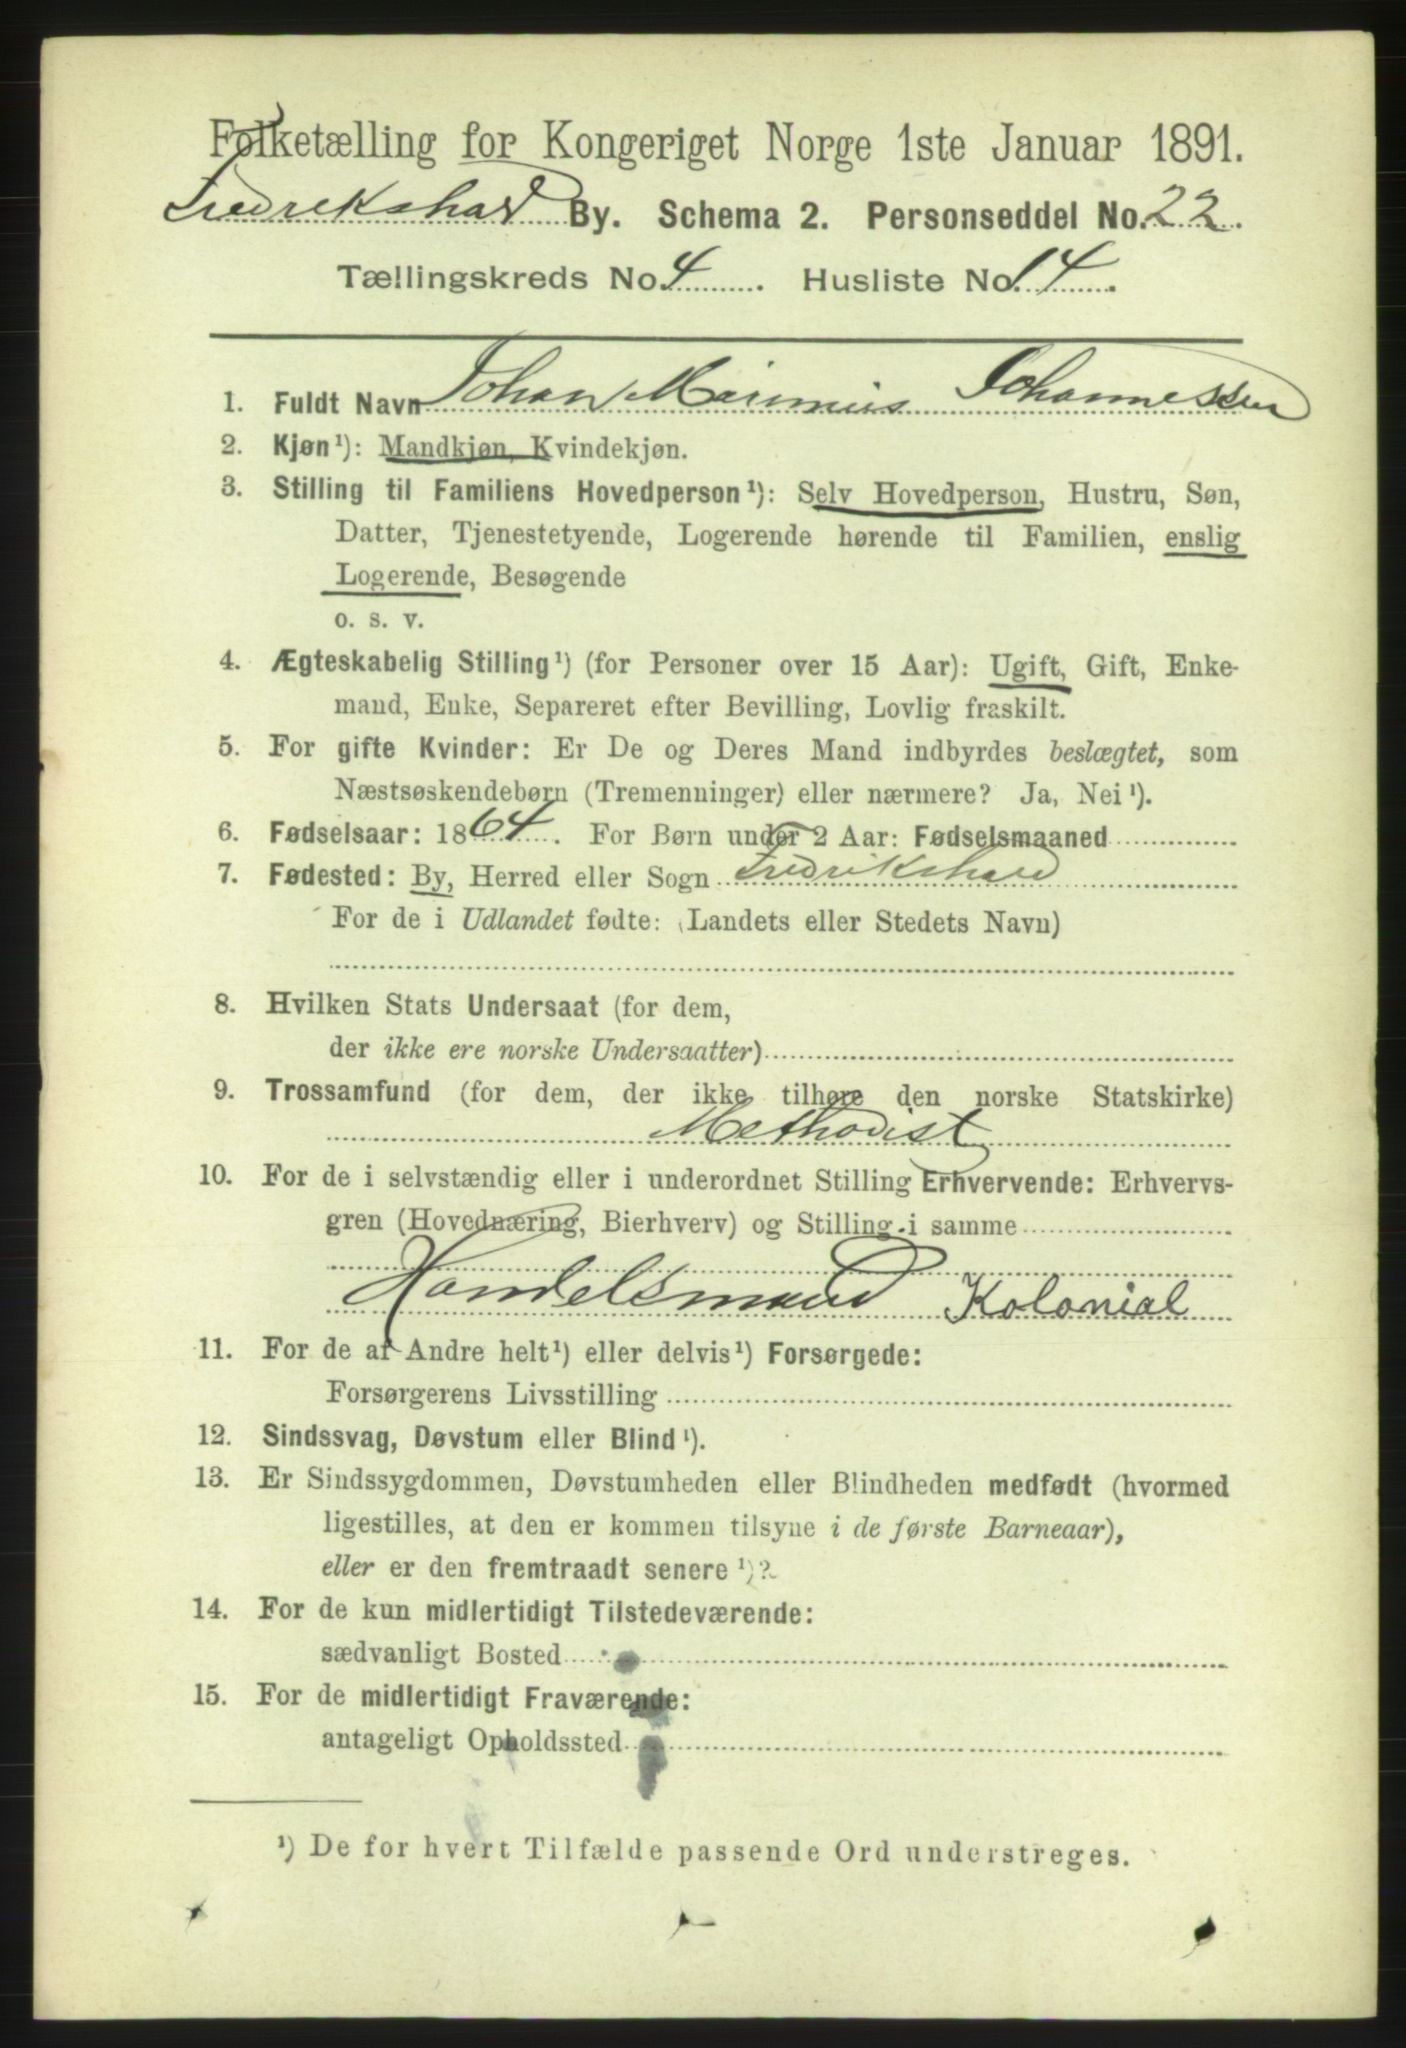 Folketælling for Kongeriget Norge 1ste Januar 1891.
Fredrikshald By. Schema 2. Personseddel No. 22.
Tællingskreds No. 4. Husliste No. 14.
1. Fuldt Navn Johan Marinius Johannessen
2. Kjøn¹): Mandkjøn, Kvindekjøn.
3. Stilling til Familiens Hovedperson¹): Selv Hovedperson, Hustru, Søn,
Datter, Tjenestetyende, Logerende hørende til Familien, enslig
Logerende, Besøgende
o. s. v.
4. Ægteskabelig Stilling¹) (for Personer over 15 Aar): Ugift, Gift, Enke-
mand, Enke, Separeret efter Bevilling, Lovlig fraskilt.
5. For gifte Kvinder: Er De og Deres Mand indbyrdes beslægtet, som
Næstsøskendebørn (Tremenninger) eller nærmere? Ja, Nei¹).
6. Fødselsaar: 1864. For Børn under 2 Aar: Fødselsmaaned
7. Fødested: By, Herred eller Sogn Fredrikshald
For de i Udlandet fødte: (Landets eller Stedets Navn)
8. Hvilken Stats Undersaat (for dem,
der ikke ere norske Undersaatter)
9. Trossamfund (for dem, der ikke tilhøre den norske Statskirke)
Methodist
10. For de i selvstændig eller i underordnet Stilling Erhvervende: Erhvervs-
gren (Hovednæring, Bierhverv) og Stilling i samme
Handelsmand Kolonial
11. For de af Andre helt¹) eller delvis¹) Forsørgede:
Forsørgerens Livsstilling
12. Sindssvag, Døvstum eller Blind¹).
13. Er Sindssygdommen, Døvstumheden eller Blindheden medfødt (hvormed
ligestilles, at den er kommen tilsyne i de første Barneaar),
eller er den fremtraadt senere¹)?
14. For de kun midlertidigt Tilstedeværende:
sædvanligt Bosted
15. For de midlertidigt Fraværende:
antageligt Opholdssted
¹) De for hvert Tilfælde passende Ord understreges.